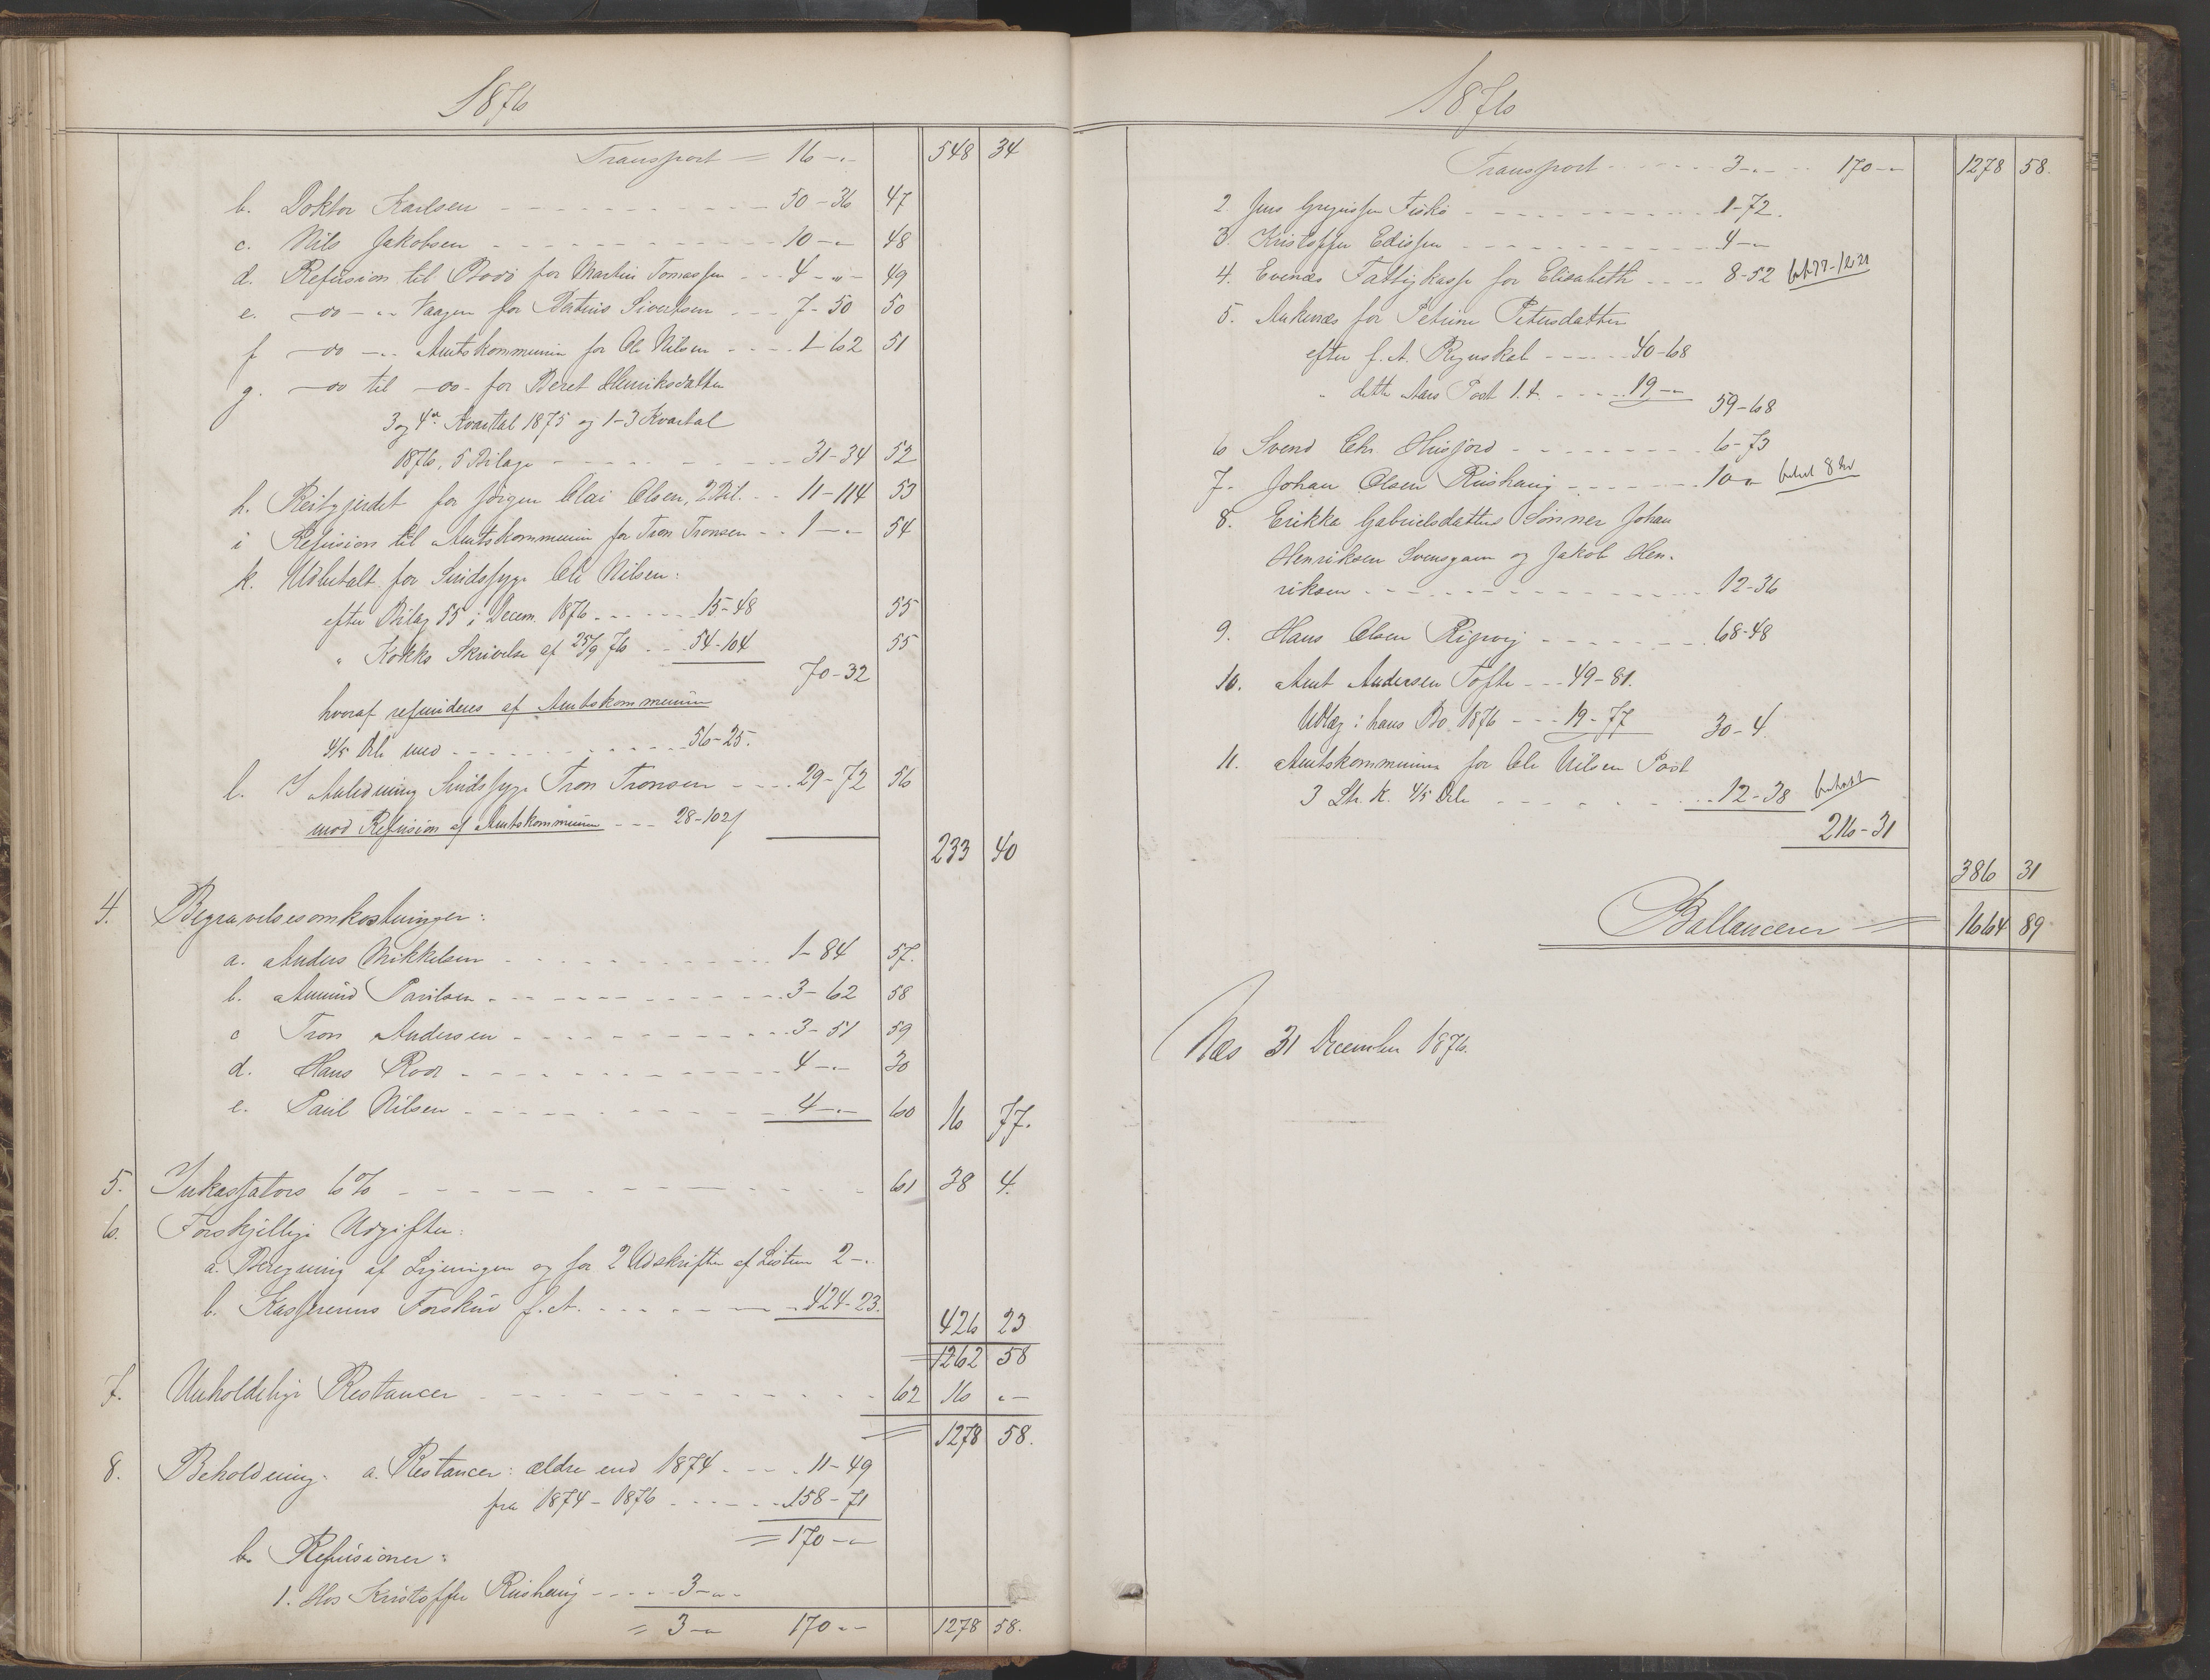 1876
Transport = 16 - " - 548 34
b. Doktor Karlsen - - - 50 - 36 47
c. Nils Jakobsen - - - 10 - " 48
d. Refusion til Bodø for Martin Tomassen - - - 4 - " - 49
e. - oo - " Vaagen for Petrus Sivertsen - - - 7 - 50 50
f - oo - " Amtskommunen for Ole Nilsen - - - 1 - 62 51
g. - oo til - oo - for Beret Henriksdatter
3 og 4de Kvartal 1875 og 1-3 Kvartal
1876, 5 Bilage - - - 31 - 34 52
h. Reitgjerdet for Jørgen Olai Olsen, 2 Bil. - - 11 - 114 53
i Refusion til Amtskommunen for Tron Tronsen - - 1 - " - 54
k. Udbetalt for Sindssyge Ole Nilsen:
efter Bilag 55 i Decem. 1876 - - - 15 - 48 55
" Kokks Skrivelse af 25/9 76 - - - 54 - 104 55
70 - 32
hvoraf refunderes af Amtskommunen
4/5 Dele med - - - 56 - 25.
l. I Anledning Sindssyge Tron Tronsen - - - 29 - 72 56
mod Refusion af Amtskommunen - - - 28 - 102
233 40
4. Begravelsesomkostninger:
a. Anders Mikkelsen - - - 1 - 84 57.
b. Amund Paulsen - - - 3 - 62 58
c Tron Andersen - - - 3 - 51 59
d. Hans Roor - - - 4 - " - 30
e. Paul Nilsen - - - 4 - " - 60 16 77.
5. Inkassators 6% - - - 61 38 4.
6. Forskjellige Udgifter:
a. Beregning af Ligningen og for 2 Udskrifter af Listen 2 - "
b. Kassererens Forskud f. A. - - - 424 - 23.
426 23
= 1262 58
7. Uerholdelige Restancer - - - 62 16 " -
= 1278 58.
8. Beholdning: a. Restancer: ældre end 1874 - - - 11 - 49
fra 1874 - 1876 - - - 158 - 71
= 170 - "
b. Refusioner:
1. Hos Kristoffer Rishaug - - - 3 - " -
= 3 - " 170 " - 1278 58.
1876
Transport - - - 3 - " - - 170 - " 1278 58.
2. Jens Gregussen Fiskø - - - 1 - 72.
3. Kristoffer Edissen - - - 4 - "
4. Evenæs Fattigkasse for Elisabeth - - - 8 - 52
5. Ankenæs for Petrine Petersdatter
efter f. A. Regnskab - - - 40 - 68
" dette Aars Post 1. t. - - - 19 - "
59 - 68
6 Svend Chr. Husjord - - - 6 - 73
7. Johan Olsen Rishaug - - - 10 " betalt 8
8. Erikka Gabrielsdatters Sønner Johan
Henriksen Svensgam og Jakob Hen-
riksen - - - 12 - 36
9. Hans Olsen - - - 68 - 48
10. Arnt Andersen Tofte - - - 49 - 81.
Udlæg i hans Bo 1876 - - - 19 - 77 30 - 4.
11. Amtskommunen for Ole Nilsen Post
3 Litr. K. 4/5 Dele - - - 12 - 38 betalt
216 - 31
386 31
Ballancerer = 1664 89
Næs 31 December 1876.